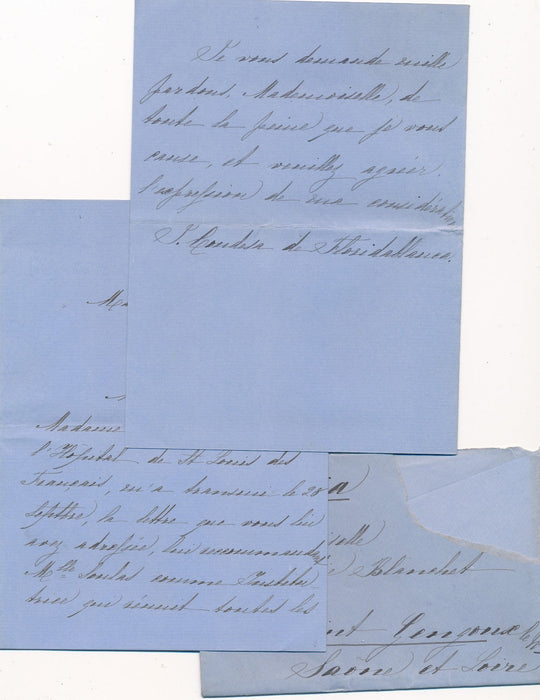 Je vous demande mille
pardons, Mademoiselle, de
toute la peine que je vous
cause, et veuillez agréer
l'expression de ma considération
J. Condesa de Floridablanca.
Ma
Madame
l'Hôpital de St Louis des
Français, m'a transmis le 28
Sepbre, la lettre que vous lui
avez adressée, lui recommandant
Mlle Soulas comme Institu
trice qui réunit toutes les
a
selle
Blanchet
int Gengoux le
Saône et Loire